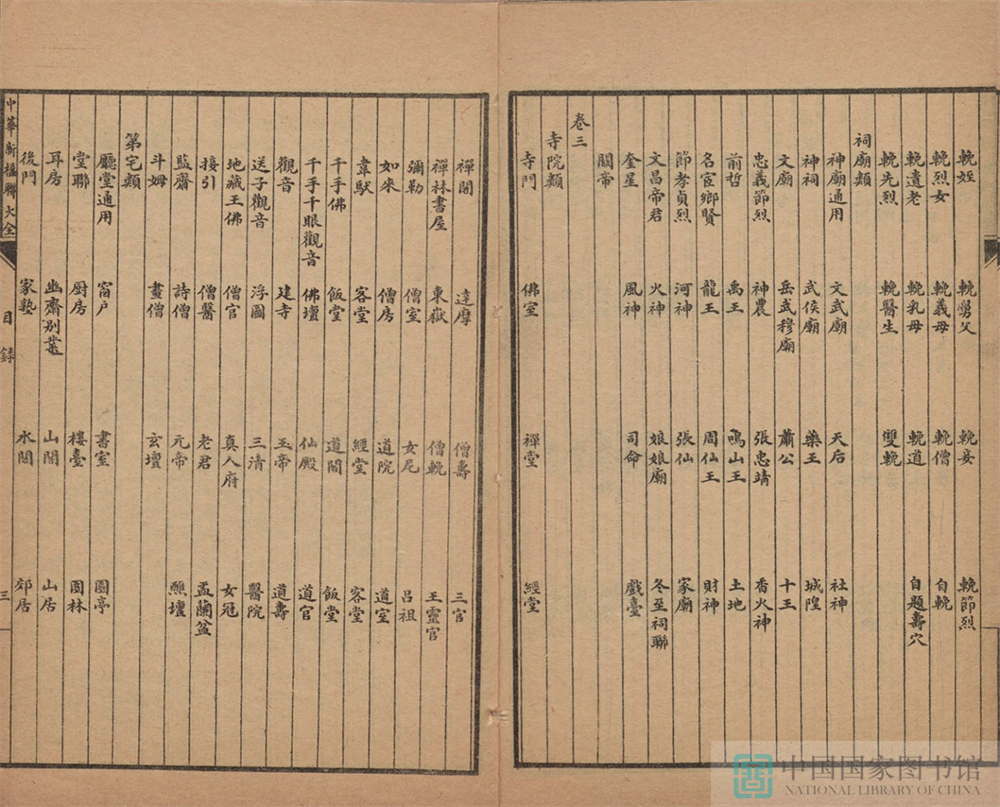 輓姪 輓舅父 輓妾 輓節烈
輓烈女 輓義母 輓僧 自輓
輓遺老 輓乳母 輓道 自題壽穴
輓先烈 輓醫生 雙輓
祠廟類
神廟通用 文武廟 天后 社神
神祠 武侯廟 藥王 城隍
文廟 岳武穆廟 蕭公 十王
忠義節烈 神農 張忠靖 香火神
前哲 禹王 鳴山王 土地
名宦鄉賢 龍王 周仙王 財神
節孝貞烈 河神 張仙 家廟
文昌帝君 火神 娘娘廟 冬至祠聯
奎星 風神 司命 戲臺
關帝
卷三
寺院類
寺門 佛室 禪堂 經堂
禪關 達摩 僧壽 三官
禪林書屋 東嶽 僧輓 王靈官
彌勒 僧室 女尼 呂祖
如來 僧房 道院 道室
韋馱 客堂 經堂 客堂
千手佛 飯堂 道閣 飯堂
千手千眼觀音 佛壇 仙殿 道官
觀音 建寺 玉帝 道壽
送子觀音 浮圖 三清 醫院
地藏王佛 僧官 真人府 女冠
接引 僧醫 老君 盂蘭盆
監齋 詩僧 元帝 醮壇
斗姆 畫僧 玄壇
第宅類
廳堂通用 窗户 書室 園亭
堂聯 厨房 樓臺 園林
耳房 幽齋別業 山閣 山居
後門 家塾 水閣 郊居
中華新楹聯大全 目錄 三
中国国家图书馆
NATIONAL LIBRARY OF CHINA